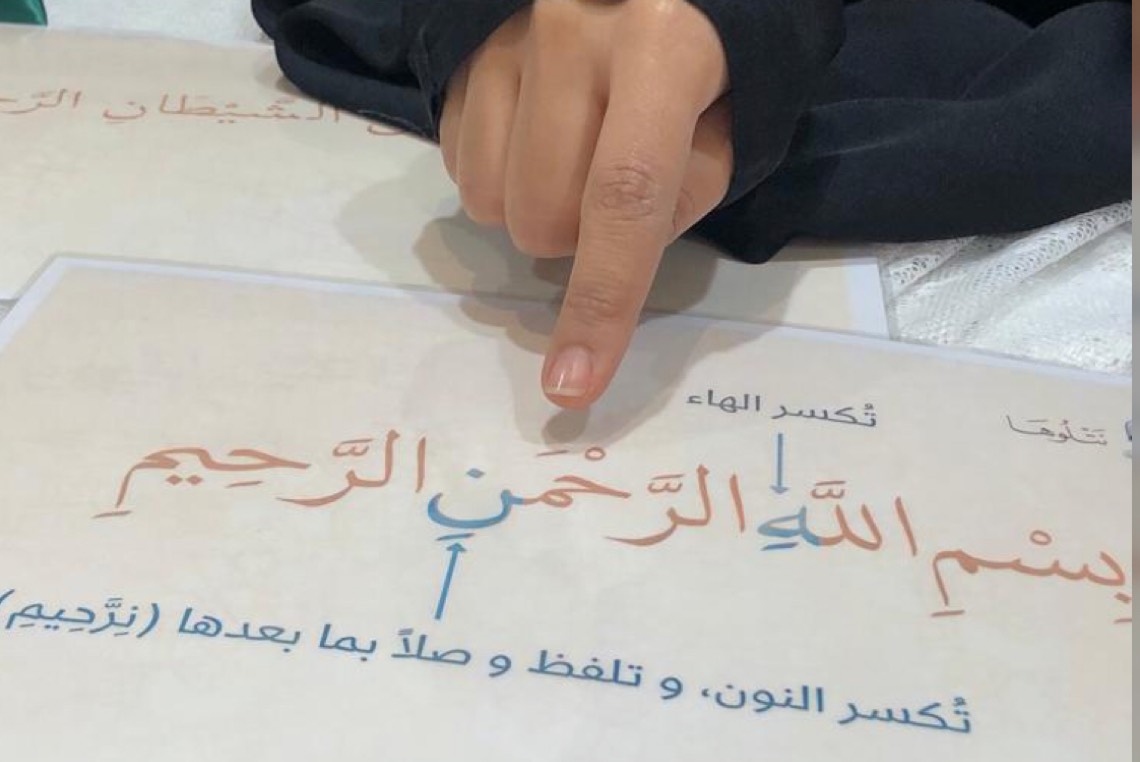 الشَّيْطَانِ
نَتْلُوهَا
تُكسر الهاء
بِسْمِ اللَّهِ الرَّحْمَنِ الرَّحِيمِ
تُكسر النون، و تلفظ و صلاً بما بعدها (نِرَّحِيمِ)